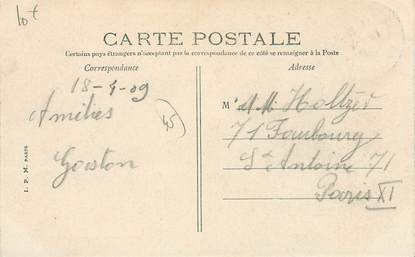 lot
CARTE POSTALE
Certains pays étrangers n'acceptant pas la correspondance de ce côté se renseigner à la Poste
Correspondance
Adresse
18-4-09
Amitiés
Gaston
45
M' M M Holtzer
71 Faubourg
St Antoine 71
Paris XI
L. P. M. PARIS